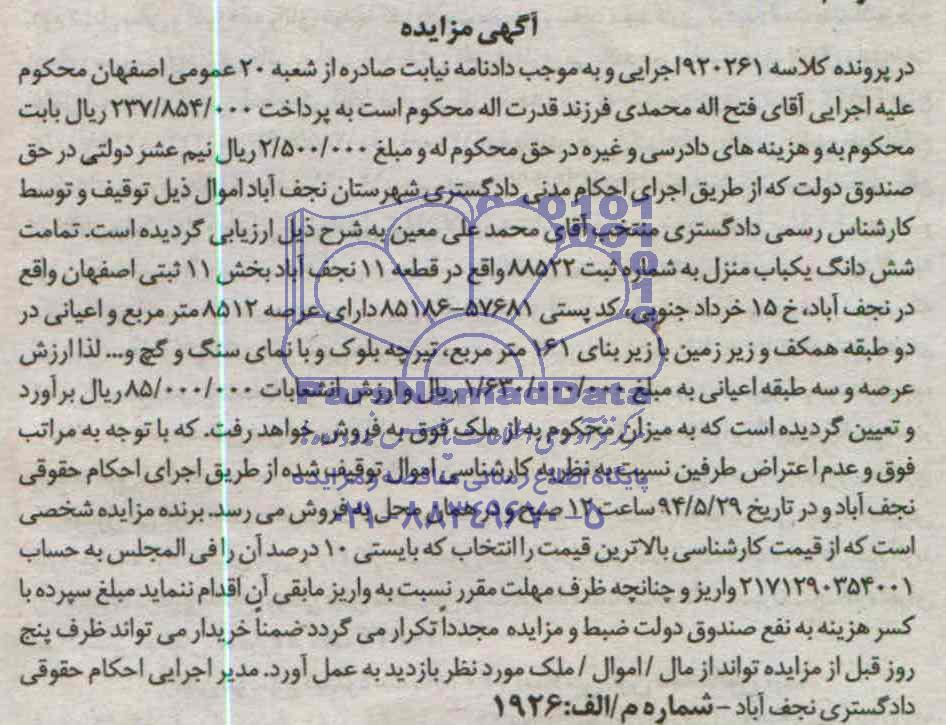 آگهی مزایده
در پرونده کلاسه ۹۲۰۲۶۱اجرایی و به موجب دادنامه نیابت صادره از شعبه ۲۰ عمومی اصفهان محکوم
علیه اجرایی آقای فتح اله محمدی فرزند قدرت اله محکوم است به پرداخت ۲۳۷/۸۵۴/۰۰۰ ریال بابت
محکوم به و هزینه های دادرسی و غیره در حق محکوم له و مبلغ ۲/۵۰۰/۰۰۰ریال نیم عشر دولتی در حق
صندوق دولت که از طریق اجرای احکام مدنی دادگستری شهرستان نجف آباد اموال ذیل توقیف و توسط
کارشناس رسمی دادگستری منتخب آقای محمد علی معین به شرح ذیل ارزیابی گردیده است. تمامت
شش دانگ یکباب منزل به شماره ثبت ۸۸۵۲۲ واقع در قطعه ۱۱ نجف آباد بخش ۱۱ ثبتی اصفهان واقع
در نجف آباد، خ ۱۵ خرداد جنوبی، کد پستی ۵۷۶۸۱-۸۵۱۸۶ دارای عرصه ۸۵۱۲ متر مربع و اعیانی در
دو طبقه همکف و زیر زمین با زیر بنای ۱۶۱ متر مربع، تیرچه بلوک و با نمای سنگ و گچ و... لذا ارزش
عرصه و سه طبقه اعیانی به مبلغ ۱/۶۳۰/۰۰۰/۰۰۰ ریال و ارزش انشعابات ۸۵/۰۰۰/۰۰۰ریال برآورد
و تعیین گردیده است که به میزان محکوم به از ملک فوق به فروش خواهد رفت. که با توجه به مراتب
فوق و عدم اعتراض طرفین نسبت به نظریه کارشناسی اموال توقیف شده از طریق اجرای احکام حقوقی
نجف آباد و در تاریخ ۹۴/۵/۲۹ساعت ۱۲ صبح و در همان محل به فروش می رسد. برنده مزایده شخصی
است که از قیمت کارشناسی بالاترین قیمت را انتخاب که بایستی ۱۰ درصد آن را فی المجلس به حساب
۲۱۷۱۲۹۰۳۵۴۰۰۱ واریز و چنانچه ظرف مهلت مقرر نسبت به واریز مابقی آن اقدام ننماید مبلغ سپرده با
کسر هزینه به نفع صندوق دولت ضبط و مزایده مجدداً تکرار می گردد ضمناً خریدار می تواند ظرف پنج
روز قبل از مزایده تواند از مال / اموال / ملک مورد نظر بازدید به عمل آورد. مدیر اجرایی احکام حقوقی
دادگستری نجف آباد – شماره م/الف:۱۹۲۶
ParsNamadData
پایگاه اطلاع رسانی مناقصه و مزایده
۰۲۱-۸۸۳۴۹۶۷۰-۵